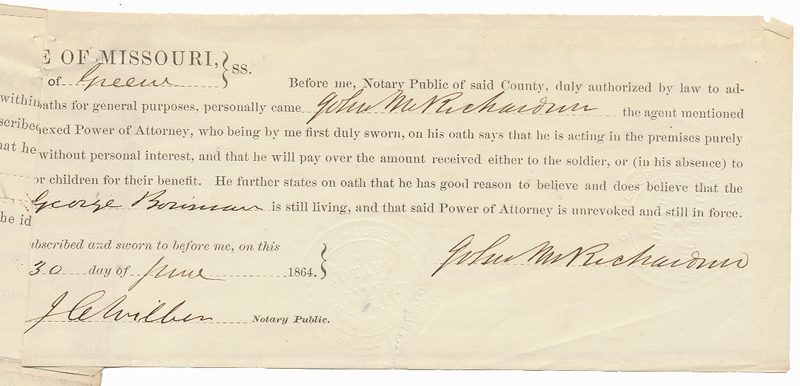 E OF MISSOURI, } ss.
of Greene
Before me, Notary Public of said County, duly authorized by law to ad-
within aths for general purposes, personally came John M Richardson the agent mentioned
scribed exed Power of Attorney, who being by me first duly sworn, on his oath says that he is acting in the premises purely
at he without personal interest, and that he will pay over the amount received either to the soldier, or (in his absence) to
or children for their benefit. He further states on oath that he has good reason to believe and does believe that the
George is still living, and that said Power of Attorney is unrevoked and still in force.
he id
ubscribed and sworn to before me, on this
30 day of June 1864. }
John M Richardson
J C Wilber Notary Public.